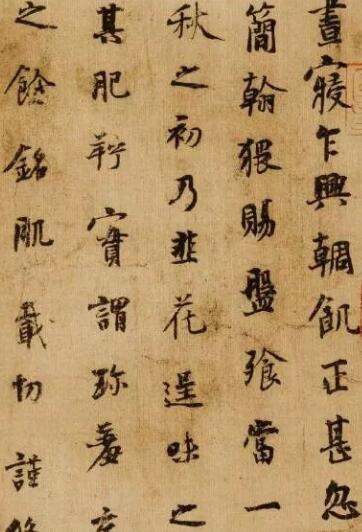 晝寢乍興輖飢正甚忽
簡翰猥賜盤飧當一
秋之初乃韭花逞味之
其肥羜實謂珍羞
之餘銘肌載切謹